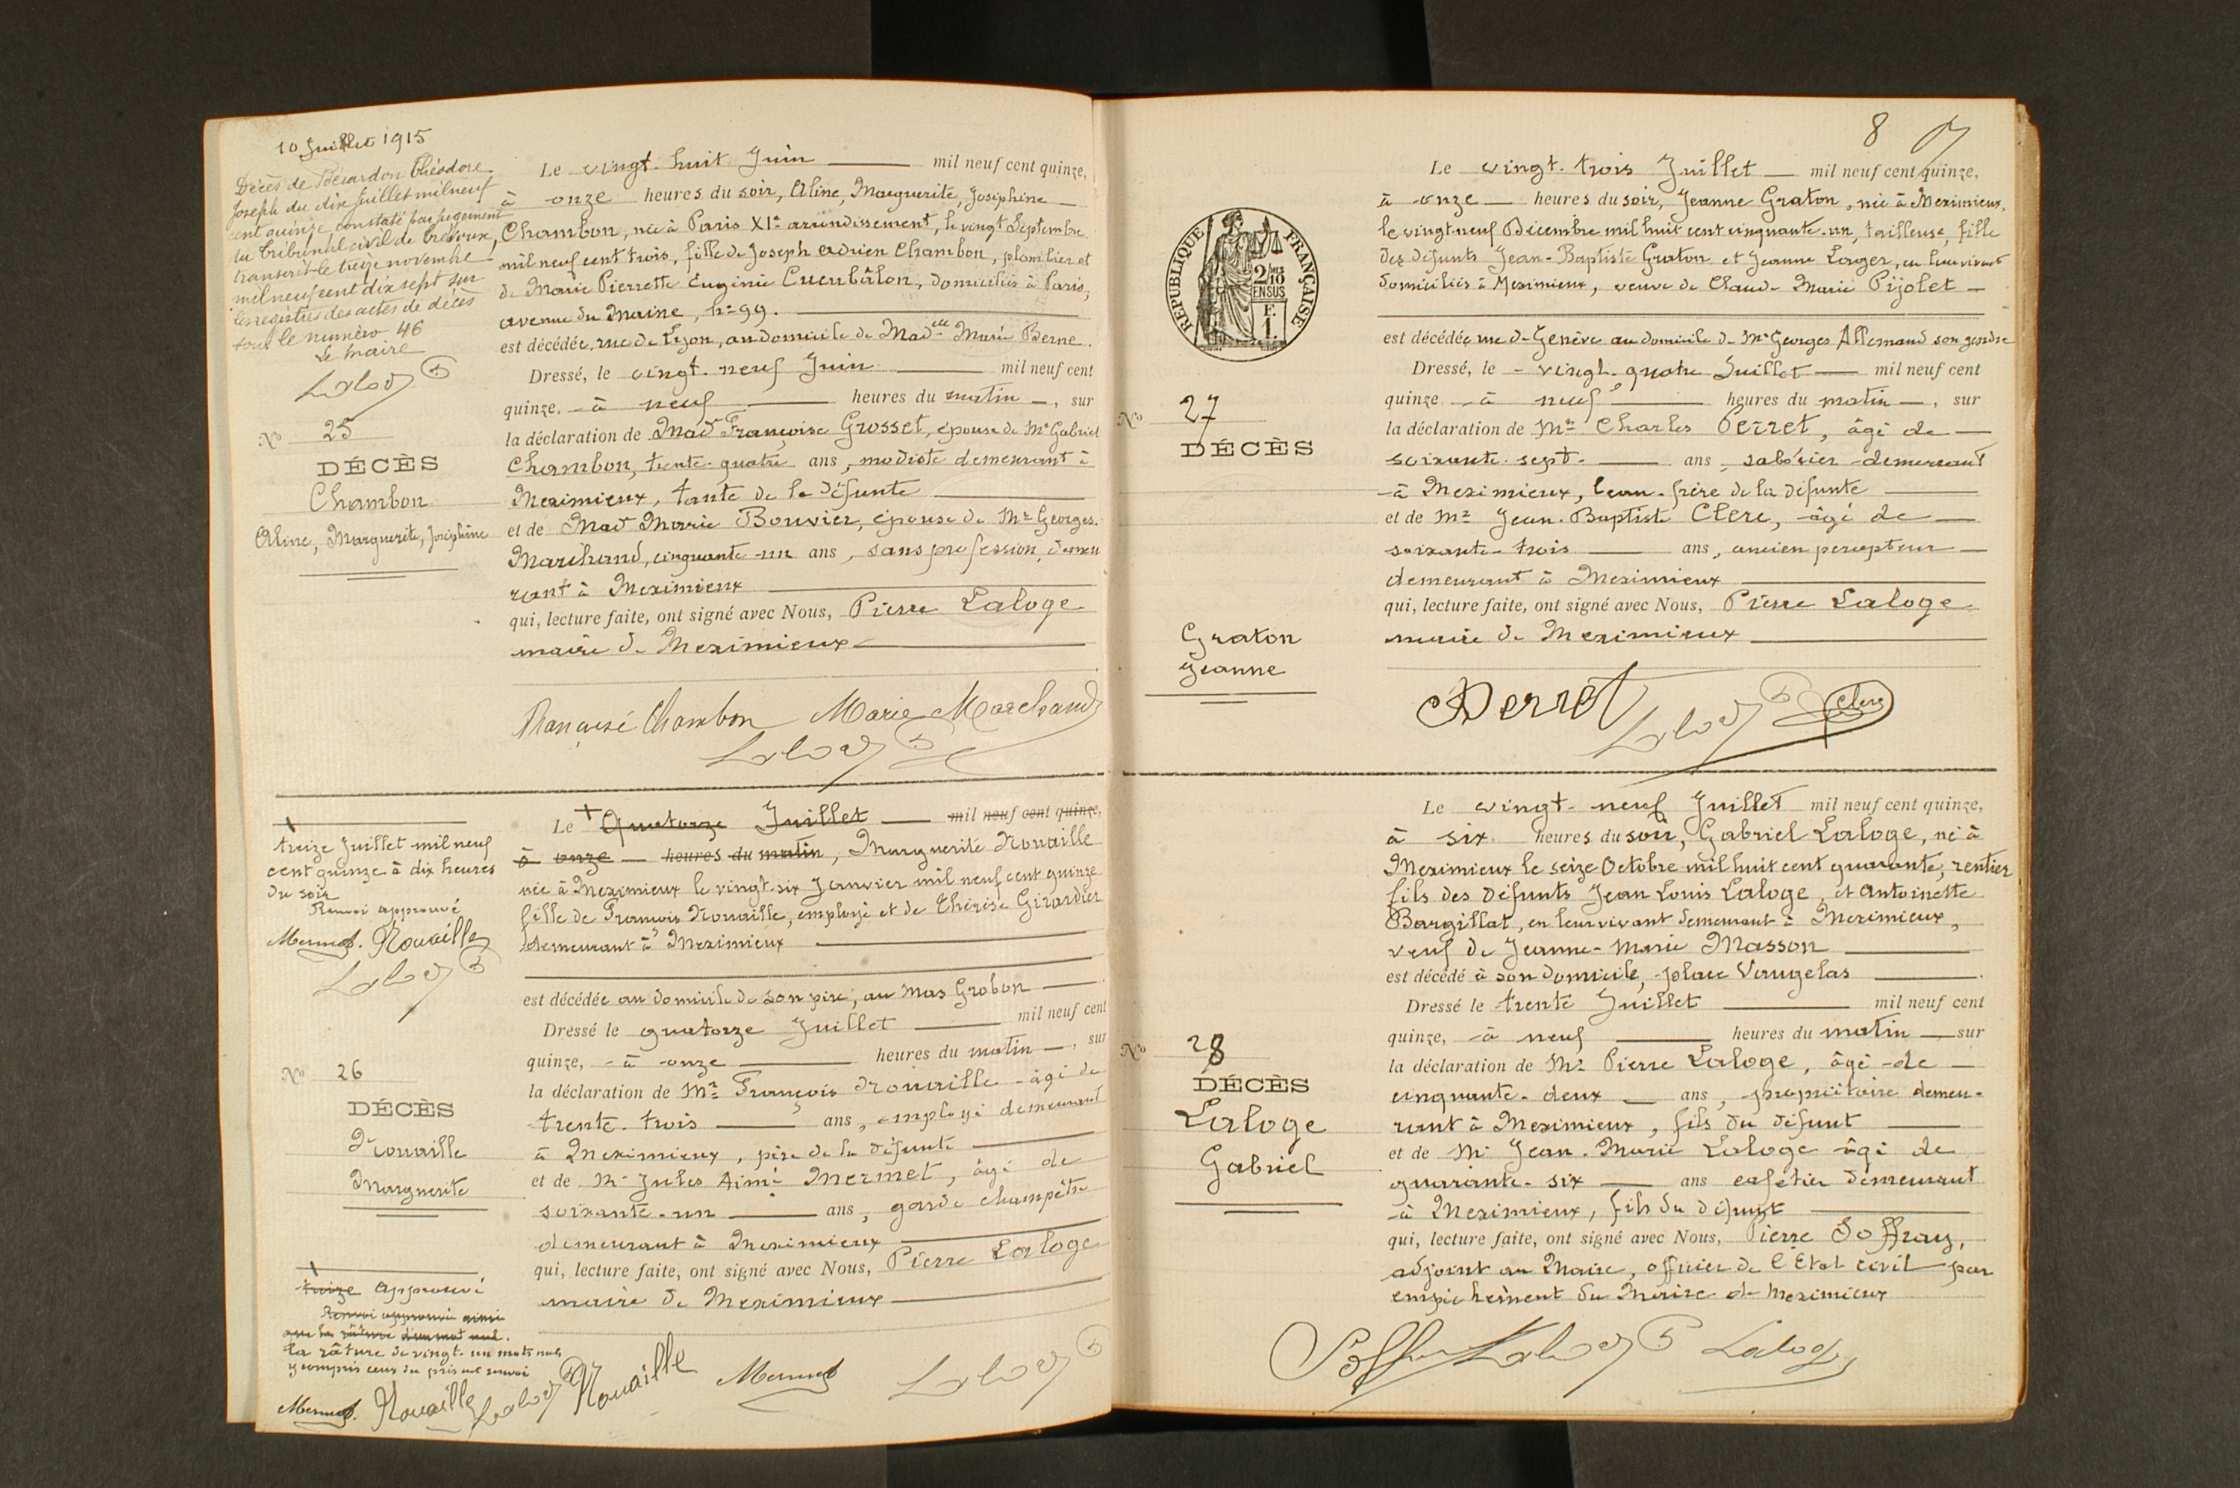 10 Juillet 1915
Décès de Théodore
Joseph du dix juillet mil neuf
cent quinze, constaté par jugement
du Tribunal civil de Trévoux,
transcrit le treize novembre
mil neuf cent dix sept sur
les registres des actes de décès
sous le numéro 46
Le Maire
No 25
DÉCÈS
Chambon
Aline, Marguerite, Joséphine
Le vingt-huit Juin mil neuf cent quinze,
à onze heures du soir, Aline, Marguerite, Joséphine
Chambon, née à Paris XIe arrondissement, le vingt Septembre
mil neuf cent trois, fille de Joseph Adrien Chambon, plombier et
de Marie Pierrette Eugénie domiciliés à Paris,
avenue du Maine, No 99.
est décédée, rue de Lyon, au domicile de Madelle Marie Berne.
Dressé, le vingt-neuf Juin mil neuf cent
quinze, à neuf heures du matin, sur
la déclaration de Made Françoise Grosset, épouse de Mr Gabriel
Chambon, trente-quatre ans, modiste demeurant à
Meximieux, tante de la défunte
et de Made Marie Bouvier, épouse de Mr Georges
Marchand, cinquante-un ans, sans profession, demeu
rant à Meximieux
qui, lecture faite, ont signé avec Nous, Pierre Laloge
maire de Meximieux
Françoise Chambon Marie Marchand
Laloge
treize Juillet mil neuf
cent quinze à dix heures
du soir
Renvoi approuvé
Mermet. Nouaille
Laloge
No 26
DÉCÈS
Nouaille
Marguerite
Le Quatorze Juillet mil neuf cent quinze,
à onze heures du matin, Marguerite Nouaille
née à Meximieux le vingt-six Janvier mil neuf cent quinze
fille de François Nouaille, employé et de Thérèse Girardier
demeurant à Meximieux
est décédée au domicile de son père, au Mas Grobon
Dressé le quatorze Juillet mil neuf cent
quinze, à onze heures du matin, sur
la déclaration de Mr François Nouaille âgé de
trente-trois ans, employé demeurant
à Meximieux, père de la défunte
et de Mr Jules Aimé Mermet, âgé de
soixante-un ans, garde champêtre
demeurant à Meximieux
qui, lecture faite, ont signé avec Nous, Pierre Laloge
maire de Meximieux
treize approuvé
Renvoi approuvé ainsi
que la râture d'un mot nul.
la râture de vingt-un mots nuls
y compris ceux du présent renvoi
Mermet. Nouaille Laloge Nouaille Mermet Laloge
8
REPUBLIQUE FRANÇAISE
2/10 EN SUS
F. 1.
No 27
DÉCÈS
Graton
Jeanne
Le vingt-trois Juillet mil neuf cent quinze,
à onze heures du soir, Jeanne Graton, née à Meximieux,
le vingt neuf Décembre mil huit cent cinquante-un, tailleuse, fille
des défunts Jean-Baptiste Graton et Jeanne Loger, en leur vivant
domiciliés à Meximieux, veuve de Claude Marie Pijolet
est décédée rue de Genève au domicile de Mr Georges Allemand son gendre
Dressé, le vingt-quatre Juillet mil neuf cent
quinze à neuf heures du matin, sur
la déclaration de Mr Charles Perret, âgé de
soixante-sept ans, sabotier demeurant
à Meximieux, beau-frère de la défunte
et de Mr Jean-Baptiste Clerc, âgé de
soixante-trois ans, ancien percepteur
demeurant à Meximieux
qui, lecture faite, ont signé avec Nous, Pierre Laloge
maire de Meximieux
Perret Laloge Clerc
No 28
DÉCÈS
Laloge
Gabriel
Le vingt-neuf Juillet mil neuf cent quinze,
à six heures du soir, Gabriel Laloge, né à
Meximieux le seize Octobre mil huit cent quarante, rentier
fils des défunts Jean Louis Laloge, et Antoinette
Bargillat, en leur vivant demeurant à Meximieux,
veuf de Jeanne-Marie Masson
est décédé à son domicile, place Vaugelas
Dressé le trente Juillet mil neuf cent
quinze, à neuf heures du matin sur
la déclaration de Mr Pierre Laloge, âgé de
cinquante-deux ans, propriétaire demeu-
rant à Meximieux, fils du défunt
et de Mr Jean-Marie Laloge âgé de
quarante-six ans cafetier demeurant
à Meximieux, fils du défunt
qui, lecture faite, ont signé avec Nous, Pierre Soffray,
adjoint au Maire, officier de l'Etat civil par
empêchement du Maire de Meximieux
Soffray Laloge Laloge